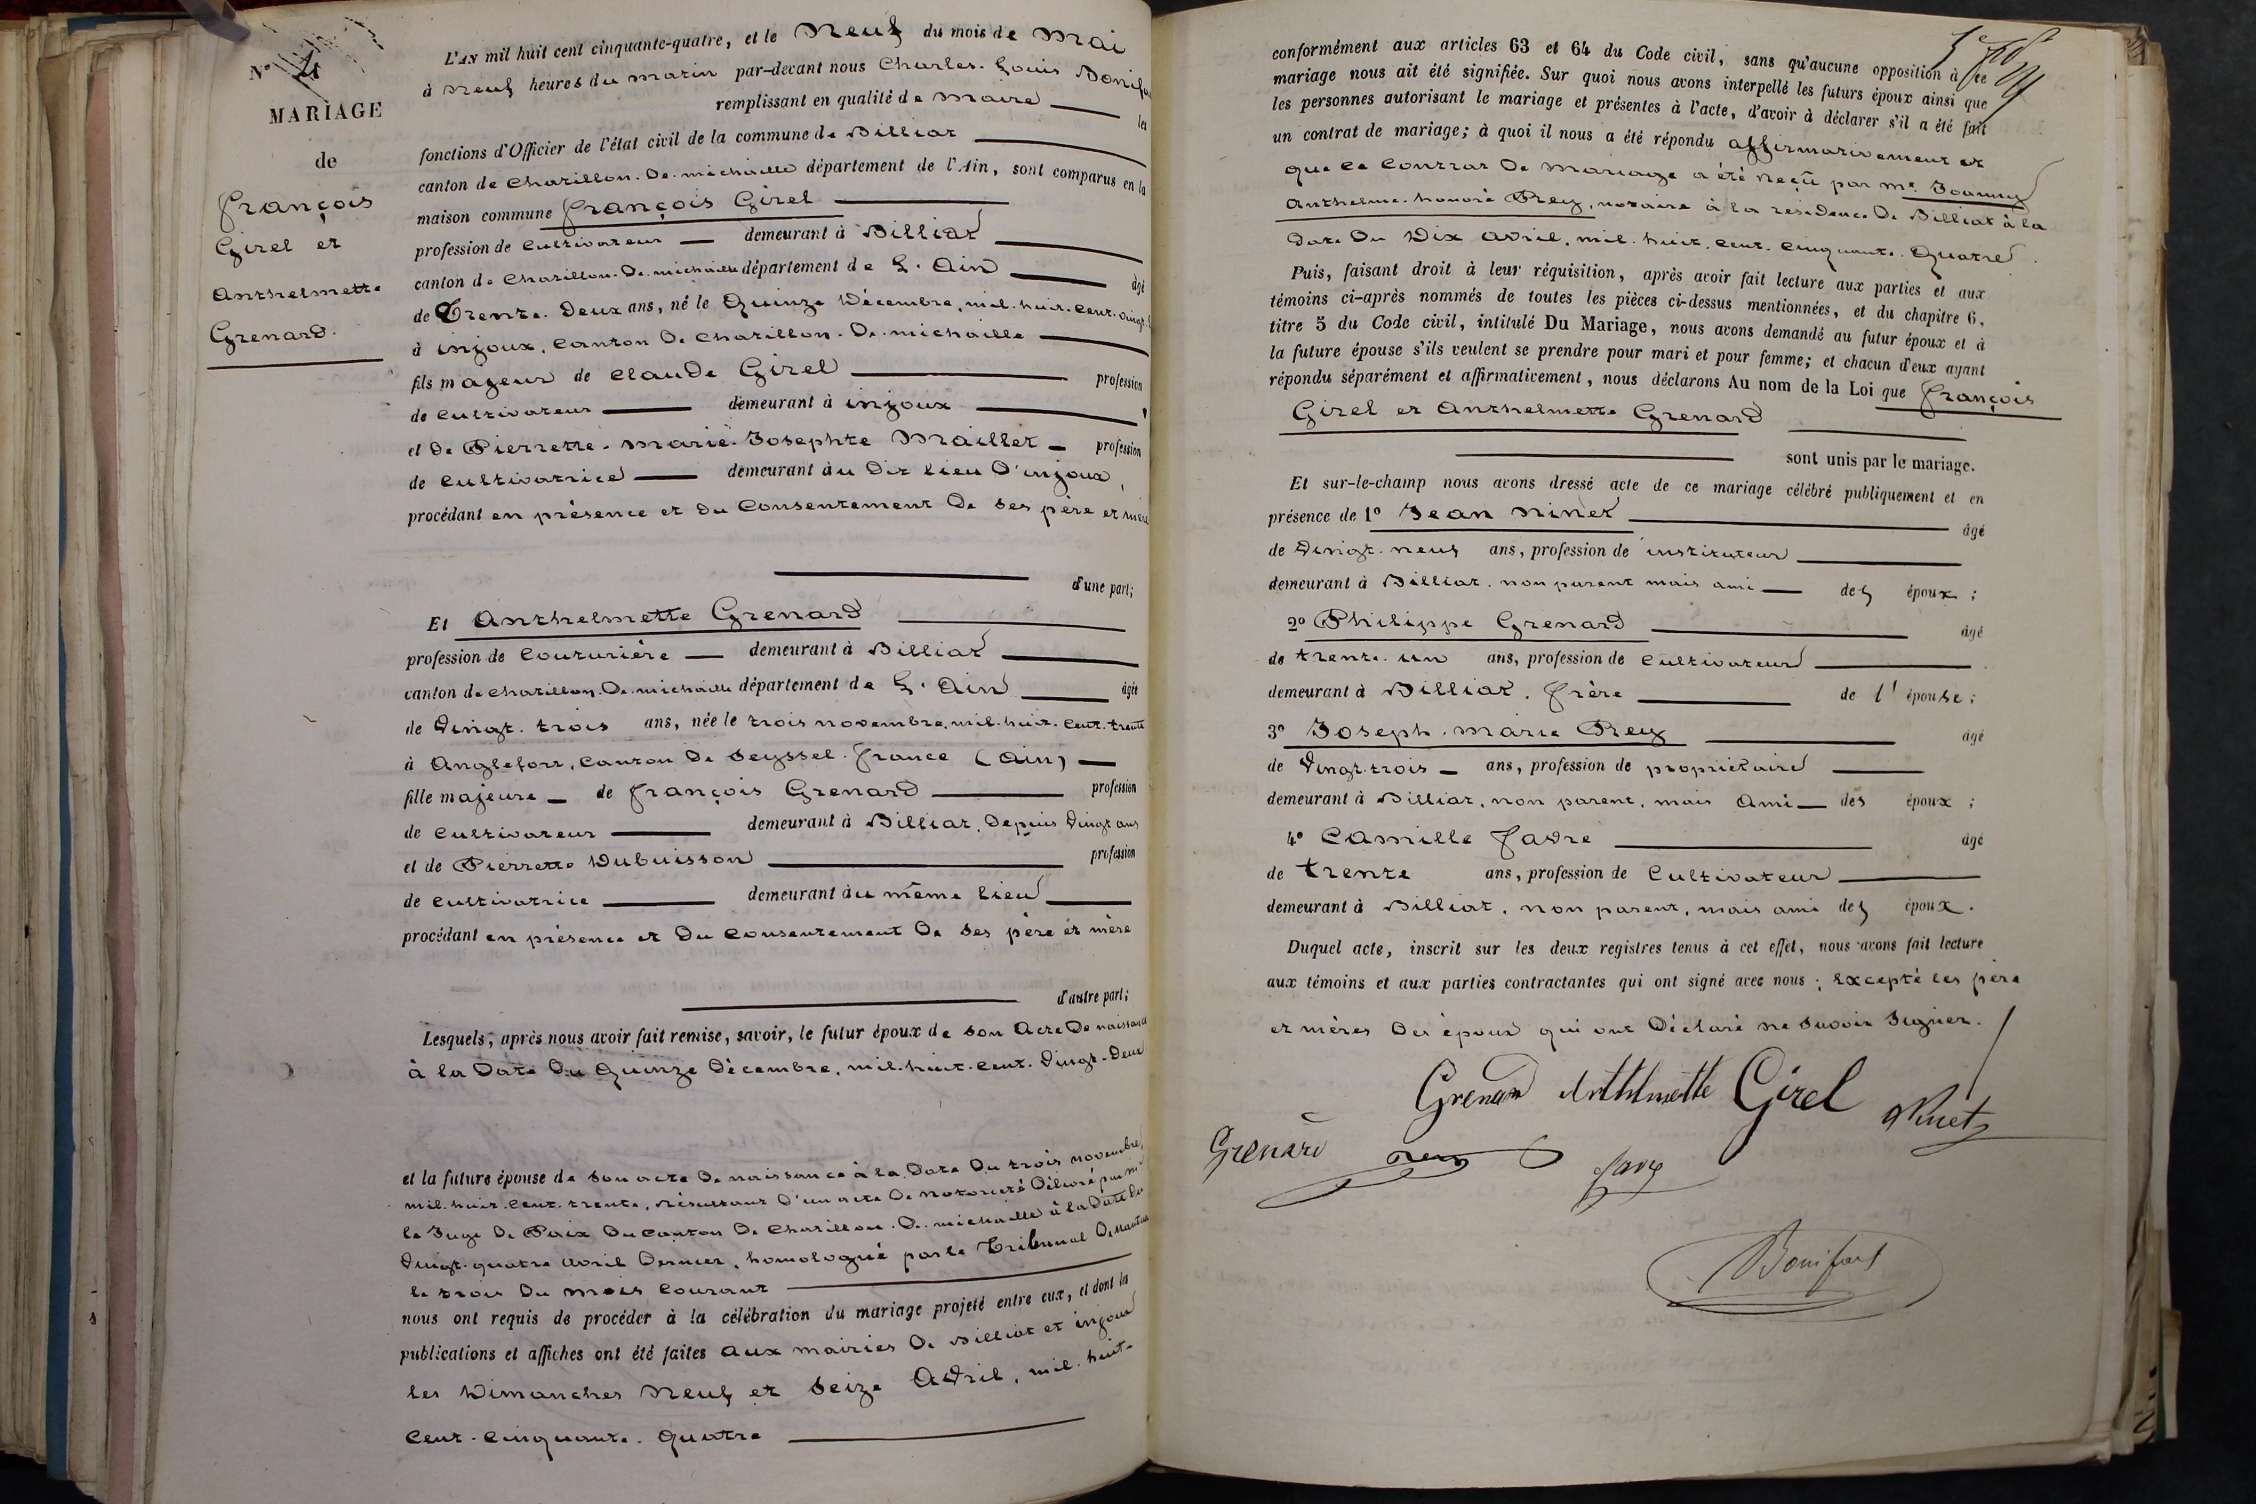 N° 4
MARIAGE
de
François
Girel et
Anthelmette
Grenard.
L'AN mil huit cent cinquante-quatre, et le Neuf du mois de Mai
à Neuf heures du matin par-devant nous Charles-Louis Bonifas
remplissant en qualité de Maire les
fonctions d'Officier de l'état civil de la commune de Billiat
canton de Chatillon-De-michaille département de l'Ain, sont comparus en la
maison commune François Girel
profession de Cultivateur demeurant à Billiat
canton de Chatillon-De-michaille département de L'Ain âgé
de Trente-Deux ans, né le Quinze Décembre, mil-huit-Cent-vingt-
à injoux, Canton De Chatillon-De-michaille
fils majeur de Claude Girel profession
de Cultivateur demeurant à injoux
et De Pierrette-Marie-Josephte Maillet profession
de Cultivatrice demeurant àu Dit lieu D'injoux,
procédant en présence et du Consentement De ses père et mère
d'une part;
Et Anthelmette Grenard
profession de Couturière demeurant à Billiat
canton de Chatillon-De-michaille département de L'Ain âgée
de Vingt-trois ans, née le trois novembre, mil-huit-Cent-trente
à Anglefort, Canton De Seyssel-france (Ain)
fille majeure de François Grenard profession
de Cultivateur demeurant à Billiat, Depuis Vingt ans
et de Pierrette Dubuisson profession
de Cultivatrice demeurant àu même lieu
procédant en présence et Du Consentement De ses père et mère
d'autre part;
Lesquels, après nous avoir fait remise, savoir, le futur époux de son Acte De naissance
à la Date Du Quinze Décembre, mil-huit-Cent-Vingt-Deux
et la future épouse de son acte De naissance à la Date Du trois novembre,
mil-huit-Cent-trente, résultant D'un acte De notoriété Délivré par Mr
le Juge De Paix Du Canton De Chatillon-De-michaille à la Date Du
Vingt-quatre avril Dernier, homologué par le Tribunal De Nantua
le trois Du mois Courant
nous ont requis de procéder à la célébration du mariage projeté entre eux, et dont la
publications et affiches ont été faites aux mairies De Billiat et injoux
les Dimanches Neuf et Seize Avril, mil-huit-
Cent-Cinquante-Quatre
conformément aux articles 63 et 64 du Code civil, sans qu'aucune opposition à ce
mariage nous ait été signifiée. Sur quoi nous avons interpellé les futurs époux ainsi que
les personnes autorisant le mariage et présentes à l'acte, d'avoir à déclarer s'il a été fait
un contrat de mariage; à quoi il nous a été répondu affirmativement et
que le Contrat De Mariage a été reçû par Me Joanny
Anthelme-honoré Rey, notaire à la résidence De Billiat à la
Date Du Dix Avril, mil-huit-Cent-Cinquante-Quatre.
Puis, faisant droit à leur réquisition, après avoir fait lecture aux parties et aux
témoins ci-après nommés de toutes les pièces ci-dessus mentionnées, et du chapitre 6,
titre 5 du Code civil, intitulé Du Mariage, nous avons demandé au futur époux et à
la future épouse s'ils veulent se prendre pour mari et pour femme; et chacun d'eux ayant
répondu séparément et affirmativement, nous déclarons Au nom de la Loi que François
Girel et Anthelmette Grenard
sont unis par le mariage.
Et sur-le-champ nous avons dressé acte de ce mariage célébré publiquement et en
présence de 1° Jean Ninet âgé
de Vingt-neuf ans, profession de instituteur
demeurant à Billiat, non parent mais ami des époux;
2° Philippe Grenard âgé
de trente-un ans, profession de Cultivateur
demeurant à Billiat, frère de l'épouse;
3° Joseph-Marie Rey âgé
de Vingt-trois ans, profession de propriétaire
demeurant à Billiat, non parent, mais Ami des époux;
4° Camille Favre âgé
de trente ans, profession de Cultivateur
demeurant à Billiat, non parent, mais ami des époux.
Duquel acte, inscrit sur les deux registres tenus à cet effet, nous avons fait lecture
aux témoins et aux parties contractantes qui ont signé avec nous; Excepté les père
et mères Des époux qui ont Déclaré ne savoir signer.
Grenard Anthelmette Girel Ninet
Grenard Rey Favre
Bonifas